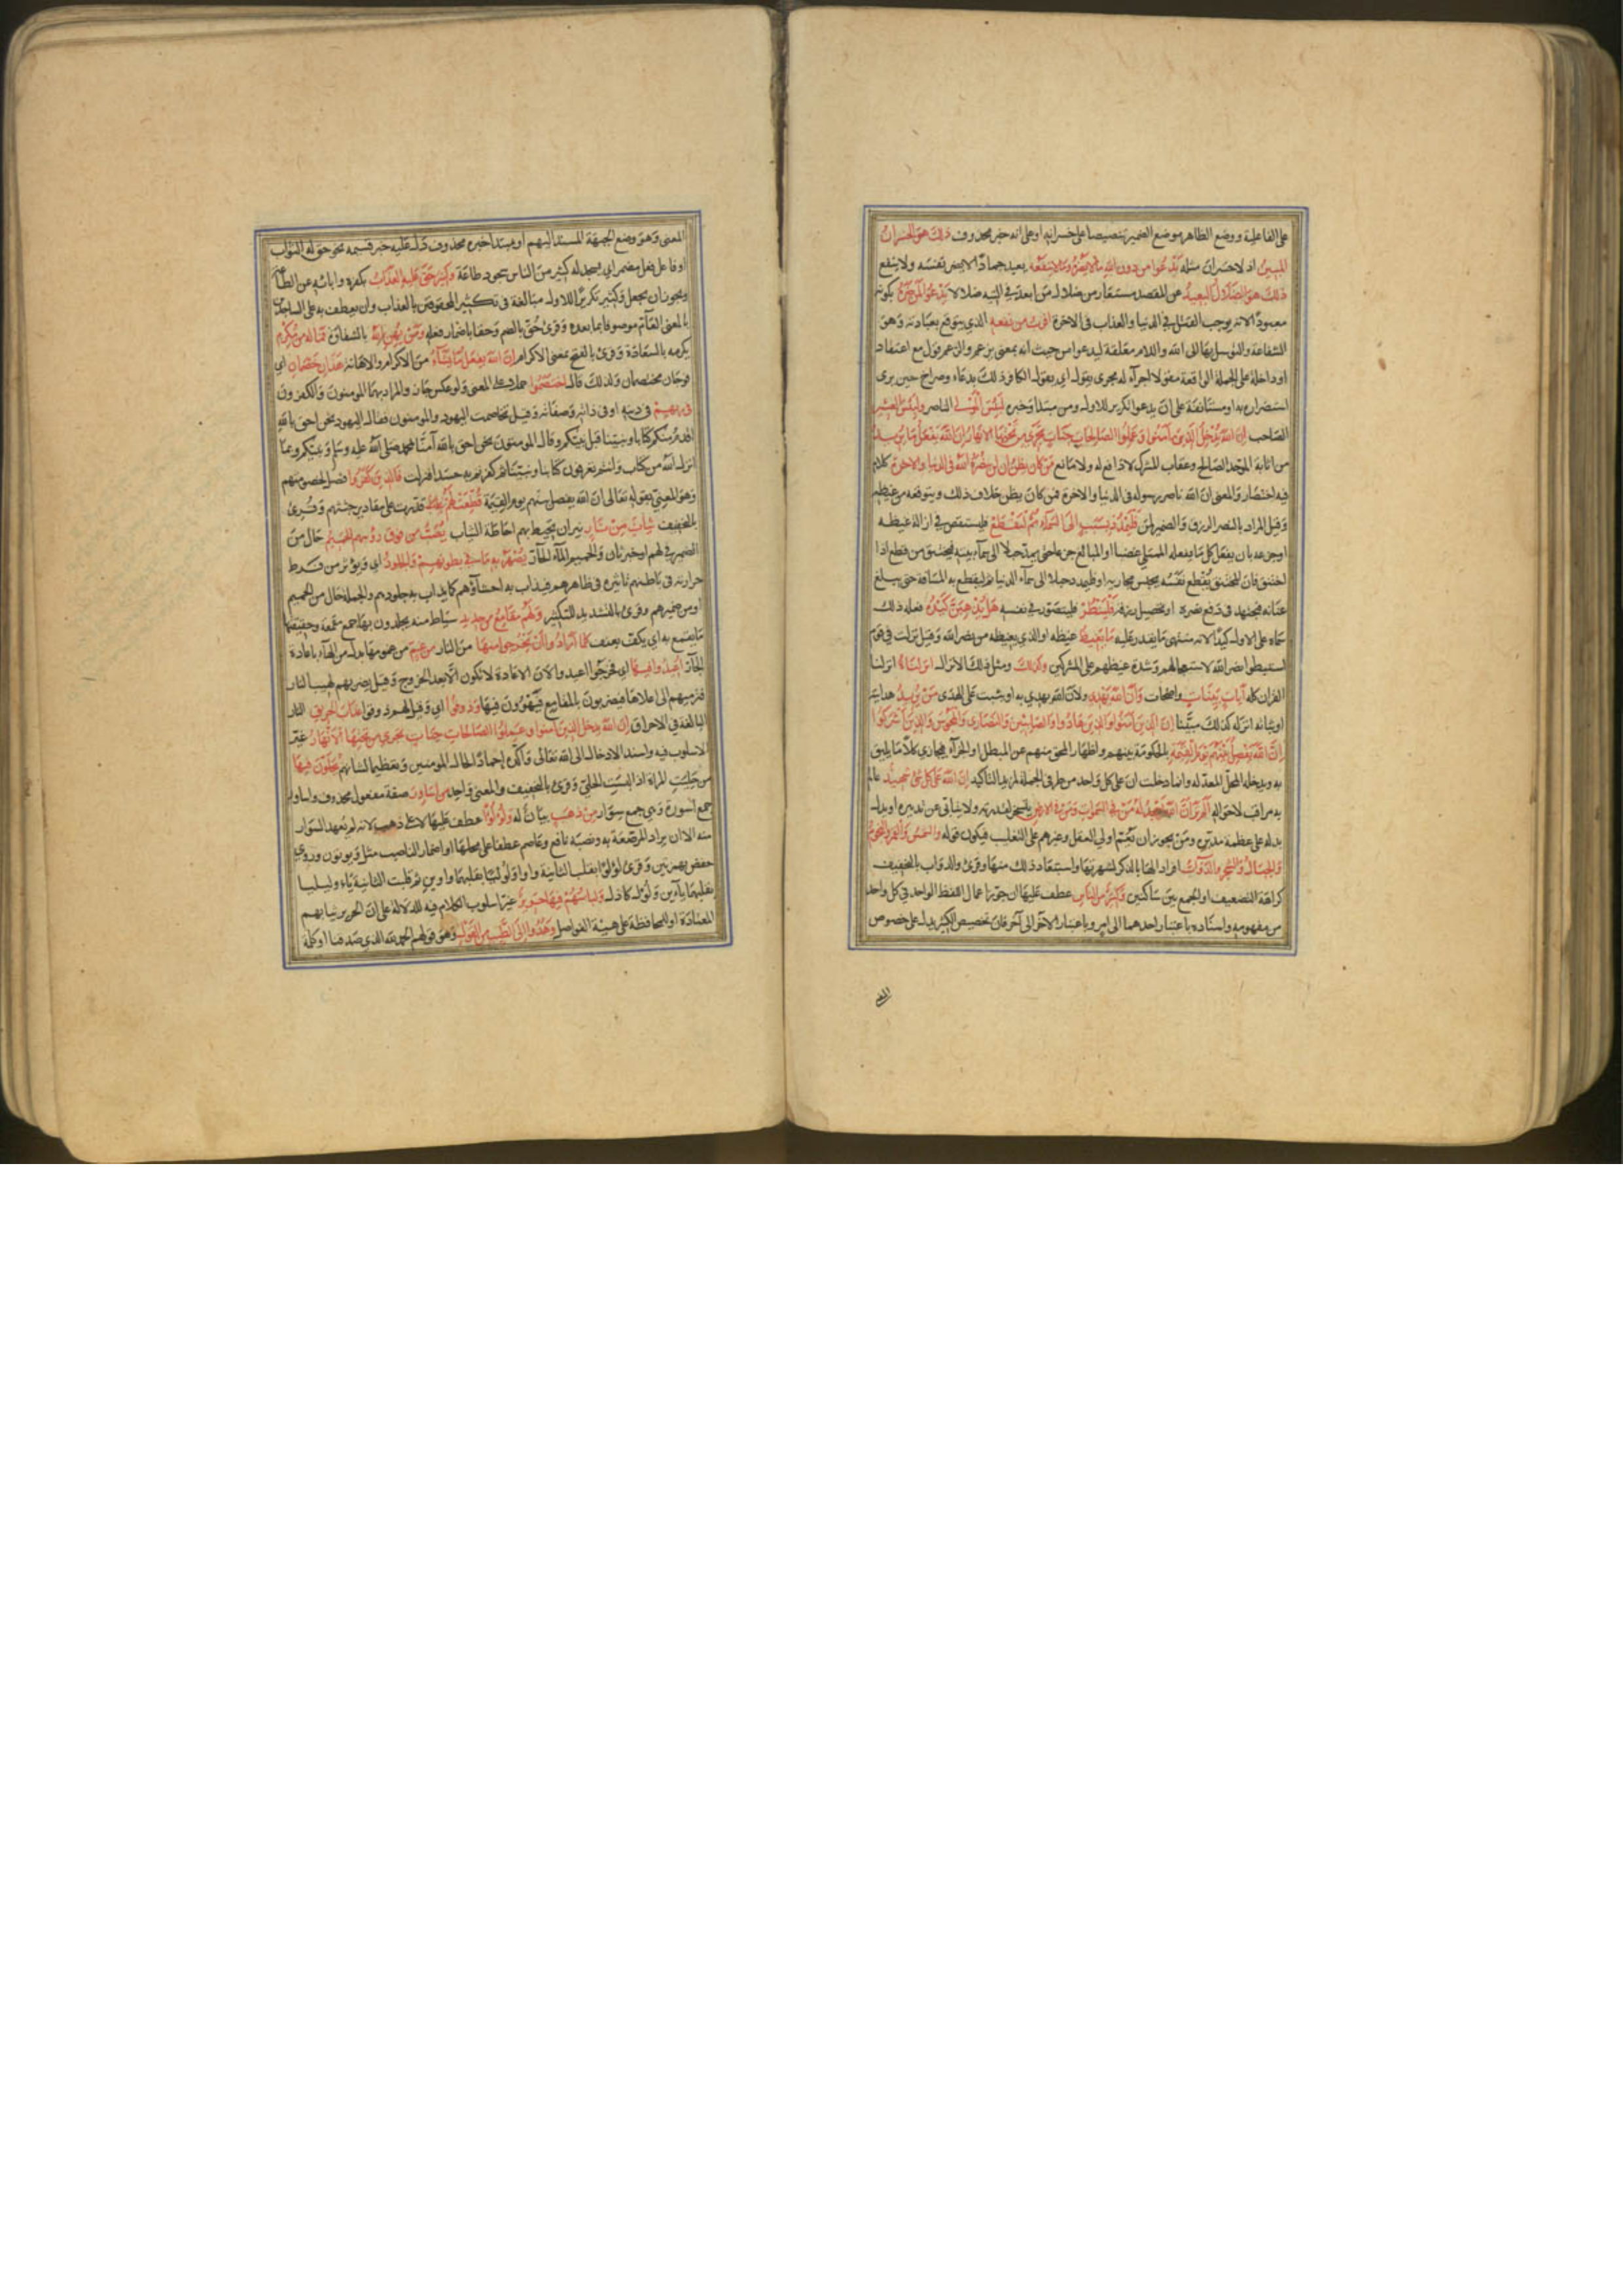 على الفاعلية ووضع الظاهر موضع الضمير تنصيصا على خسرانه او على انه خبر محذوف ذلك هو الخسران
المبين اذ لا خسران مثله يدعوا من دون الله ما لا يضره وما لا ينفعه يعبد جمادا لا يضر بنفسه ولا ينفع
ذلك هو الضلال البعيد عن المقصد مستعار من ضلال من ابعد في التيه ضلالا يدعوا لمن ضره بكونه
معبودا لانه يوجب القتل في الدنيا والعذاب في الاخرة اقرب من نفعه الذي يتوقع بعبادته وهو
الشفاعة والتوسل بها الى الله واللام معلقة ليدعوا من حيث انه بمعنى يزعم والزعم قول مع اعتقاد
او داخلة على الجملة الواقعة مفعولا اجراء له مجرى يقول اي يقول الكافر ذلك بدعاء وصراخ حين يرى
استضراره به او مستأنفة على ان يدعوا تكرير للاول ومن مبتدأ وخبره لبئس المولى الناصر ولبئس العشير
الصاحب ان الله يدخل الذين آمنوا وعملوا الصالحات جنات تجري من تحتها الانهار ان الله يفعل ما يريد
من اثابة الموحد الصالح وعقاب المشرك لا دافع له ولا مانع من كان يظن ان لن ينصره الله في الدنيا والاخرة كلام
فيه اختصار والمعنى ان الله ناصر رسوله في الدنيا والاخرة فمن كان يظن خلاف ذلك ويتوقعه من غيظه
وقيل المراد بالنصر الرزق والضمير لمن فليمدد بسبب الى السماء ثم ليقطع فليستقص في ازالة غيظه
او جزعه بان يفعل كل ما يفعله الممتلي غضبا او المبالغ جزعا حتى يمد حبلا الى سماء بيته فيختنق من قطع اذا
اختنق فان المختنق يقطع نفسه بحبس مجاريه او فليمدد حبلا الى سماء الدنيا ثم ليقطع به المسافة حتى يبلغ
عنانه فيجتهد في دفع نصره او تحصيل رزقه فلينظر فليتصور في نفسه هل يذهبن كيده فعله ذلك
سماه على الاول كيدا لانه منتهى ما يقدر عليه ما يغيظ غيظه او الذي يغيظه من نصر الله وقيل نزلت في قوم
استبطوا نصر الله لاستعجالهم وشدة غيظهم على المشركين وكذلك ومثل ذلك الانزال انزلناه انزلنا
القران كله آيات بينات واضحات وان الله يهدي ولان الله يهدي به او يثبت على الهدى من يريد هدايته
او ثباته انزله كذلك مبينا ان الذين آمنوا والذين هادوا والصابئين والنصارى والمجوس والذين اشركوا
ان الله يفصل بينهم يوم القيمة بالحكومة بينهم واظهار المحق منهم عن المبطل او الجزاء فيجازي كلا ما يليق
به ويدخله المحل المعد له وانما ادخلت ان على كل واحد من طرفي الجملة لمزيد التاكيد ان الله على كل شئ شهيد عالم
به مراقب لاحواله الم تر ان الله يسجد له من في السموات ومن في الارض يتسخر لقدرته ولا يتابى عن تدبيره او يدل
بذله على عظمة مدبره ومن يجوز ان يعم اولي العقل وغيرهم على التغليب فيكون قوله والشمس والقمر والنجوم
والجبال والشجر والدواب افرادا لها بالذكر لشهرتها واستبعاد ذلك منها وقرئ والدواب بالتخفيف
كراهة التضعيف او الجمع بين ساكنين وكثير من الناس عطف عليها ان جوز اعمال اللفظ الواحد في كل واحد
من مفهوميه واسناده باعتبار احدهما الى امر وباعتبار الاخر الى آخر فان تخصيص الكثير يدل على خصوص
المعنى وهو وضع الجبهة المسند اليهم او مبتدأ خبره محذوف دل عليه خبر قسيمه نحو حق له الثواب
او فاعل فعل مضمر اي يسجد له كثير من الناس سجود طاعة وكثير حق عليه العذاب بكفره وابائه عن الطاعة
ويجوز ان يجعل وكثير تكريرا للاول مبالغة في تكثير المحقوقين بالعذاب وان يعطف به على الساجدين
بالمعنى العام موصوفا بما بعده وقرئ حق بالضم وحقا باضمار فعله ومن يهن الله بالشقاوة فما له من مكرم
يكرمه بالسعادة وقرئ بالفتح بمعنى الاكرام ان الله يفعل ما يشاء من الاكرام والاهانة هذان خصمان اي
فوجان مختصمان ولذلك قال اختصموا حملا على المعنى ولو عكس جاز والمراد بهما المومنون والكافرون
في ربهم في دينه او في ذاته وصفاته وقيل تخاصمت اليهود والمومنون فقال اليهود نحن احق بالله
اقدم منكم كتابا ونبينا قبل نبيكم وقال المومنون نحن احق بالله آمنا بمحمد صلى الله عليه وسلم ونبيكم وبما
انزل الله من كتاب وانتم تعرفون كتابنا ونبينا ثم كفرتم به حسدا فنزلت فالذين كفروا فصل لخصومتهم
وهو المعني بقوله تعالى ان الله يفصل بينهم يوم القيمة قطعت لهم قدرت على مقادير جثثهم وقرئ
بالتخفيف ثياب من نار نيران تحيط بهم احاطة الثياب يصب من فوق رؤسهم الحميم حال من
الضمير في لهم او خبر ثان والحميم الماء الحار يصهر به ما في بطونهم والجلود اي يؤثر من فرط
حرارته في باطنهم تاثيره في ظاهرهم فيذاب به احشاؤهم كما يذاب به جلودهم والجملة حال من الحميم
او من ضميرهم وقرئ بالتشديد للتكثير ولهم مقامع من حديد سياط منه يجلدون بها جمع مقمعة وحقيقتها
ما يقمع به اي يكف بعنف كلما ارادوا ان يخرجوا منها من النار من غم من غمومها بدل من الهاء باعادة
الجار اعيدوا فيها اي فخرجوا اعيدوا لان الاعادة لا تكون الا بعد الخروج وقيل يضربهم لهيب النار
فيرفعهم الى اعلاها فيضربون بالمقامع فيهوون فيها وذوقوا اي وقيل لهم ذوقوا عذاب الحريق النار
البالغة في الاحراق ان الله يدخل الذين آمنوا وعملوا الصالحات جنات تجري من تحتها الانهار غير
الاسلوب فيه واسند الادخال الى الله تعالى واكده احمادا لحال المومنين وتعظيما لشانهم يحلون فيها
من حليت المراة اذا البستها الحلي وقرئ بالتخفيف والمعنى واحد من اساور صفة مفعول محذوف واساور
جمع اسورة وهي جمع سوار من ذهب بيان له ولؤلؤا عطف عليها لا على ذهب لانه لم يعهد السوار
منه الا ان يراد المرصعة به ونصبه نافع وعاصم عطفا على محلها او اضمار الناصب مثل ويوتون وروى
حفص بهمزتين وقرئ لؤلوا بقلب الثانية واوا ولوليا بقلبهما واوين ثم قلبت الثانية ياء وليليا
بقلبهما ياءين ولؤل كادل ولباسهم فيها حرير غير اسلوب الكلام فيه للدلالة على ان الحرير ثيابهم
المعتادة او للمحافظة على هيئة الفواصل وهدوا الى الطيب من القول وهو قولهم الحمد لله الذي صدقنا او كلمة